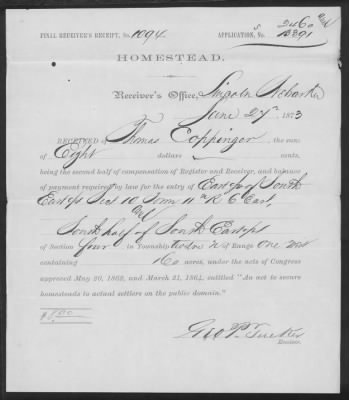 FINAL RECEIVER'S RECEIPT, No. 1094. APPLICATION, No. 2460
HOMESTEAD.
Receiver's Office, Lincoln Nebraska
June 27th 1873
RECEIVED of Thomas Coppinger the sum
of Eight dollars cents,
being the second half of compensation of Register and Receiver, and balance
of payment required by law for the entry of East ½ of South
East ¼ Sec 10 Town 11 n R 6 East,
South half of South East ¼
of Section four in Township twelve n of Range One West
containing 160 acres, under the acts of Congress
approved May 20, 1862, and March 21, 1864, entitled "An act to secure
homesteads to actual settlers on the public domain."
$8.00
Geo P. Tucker
Receiver.